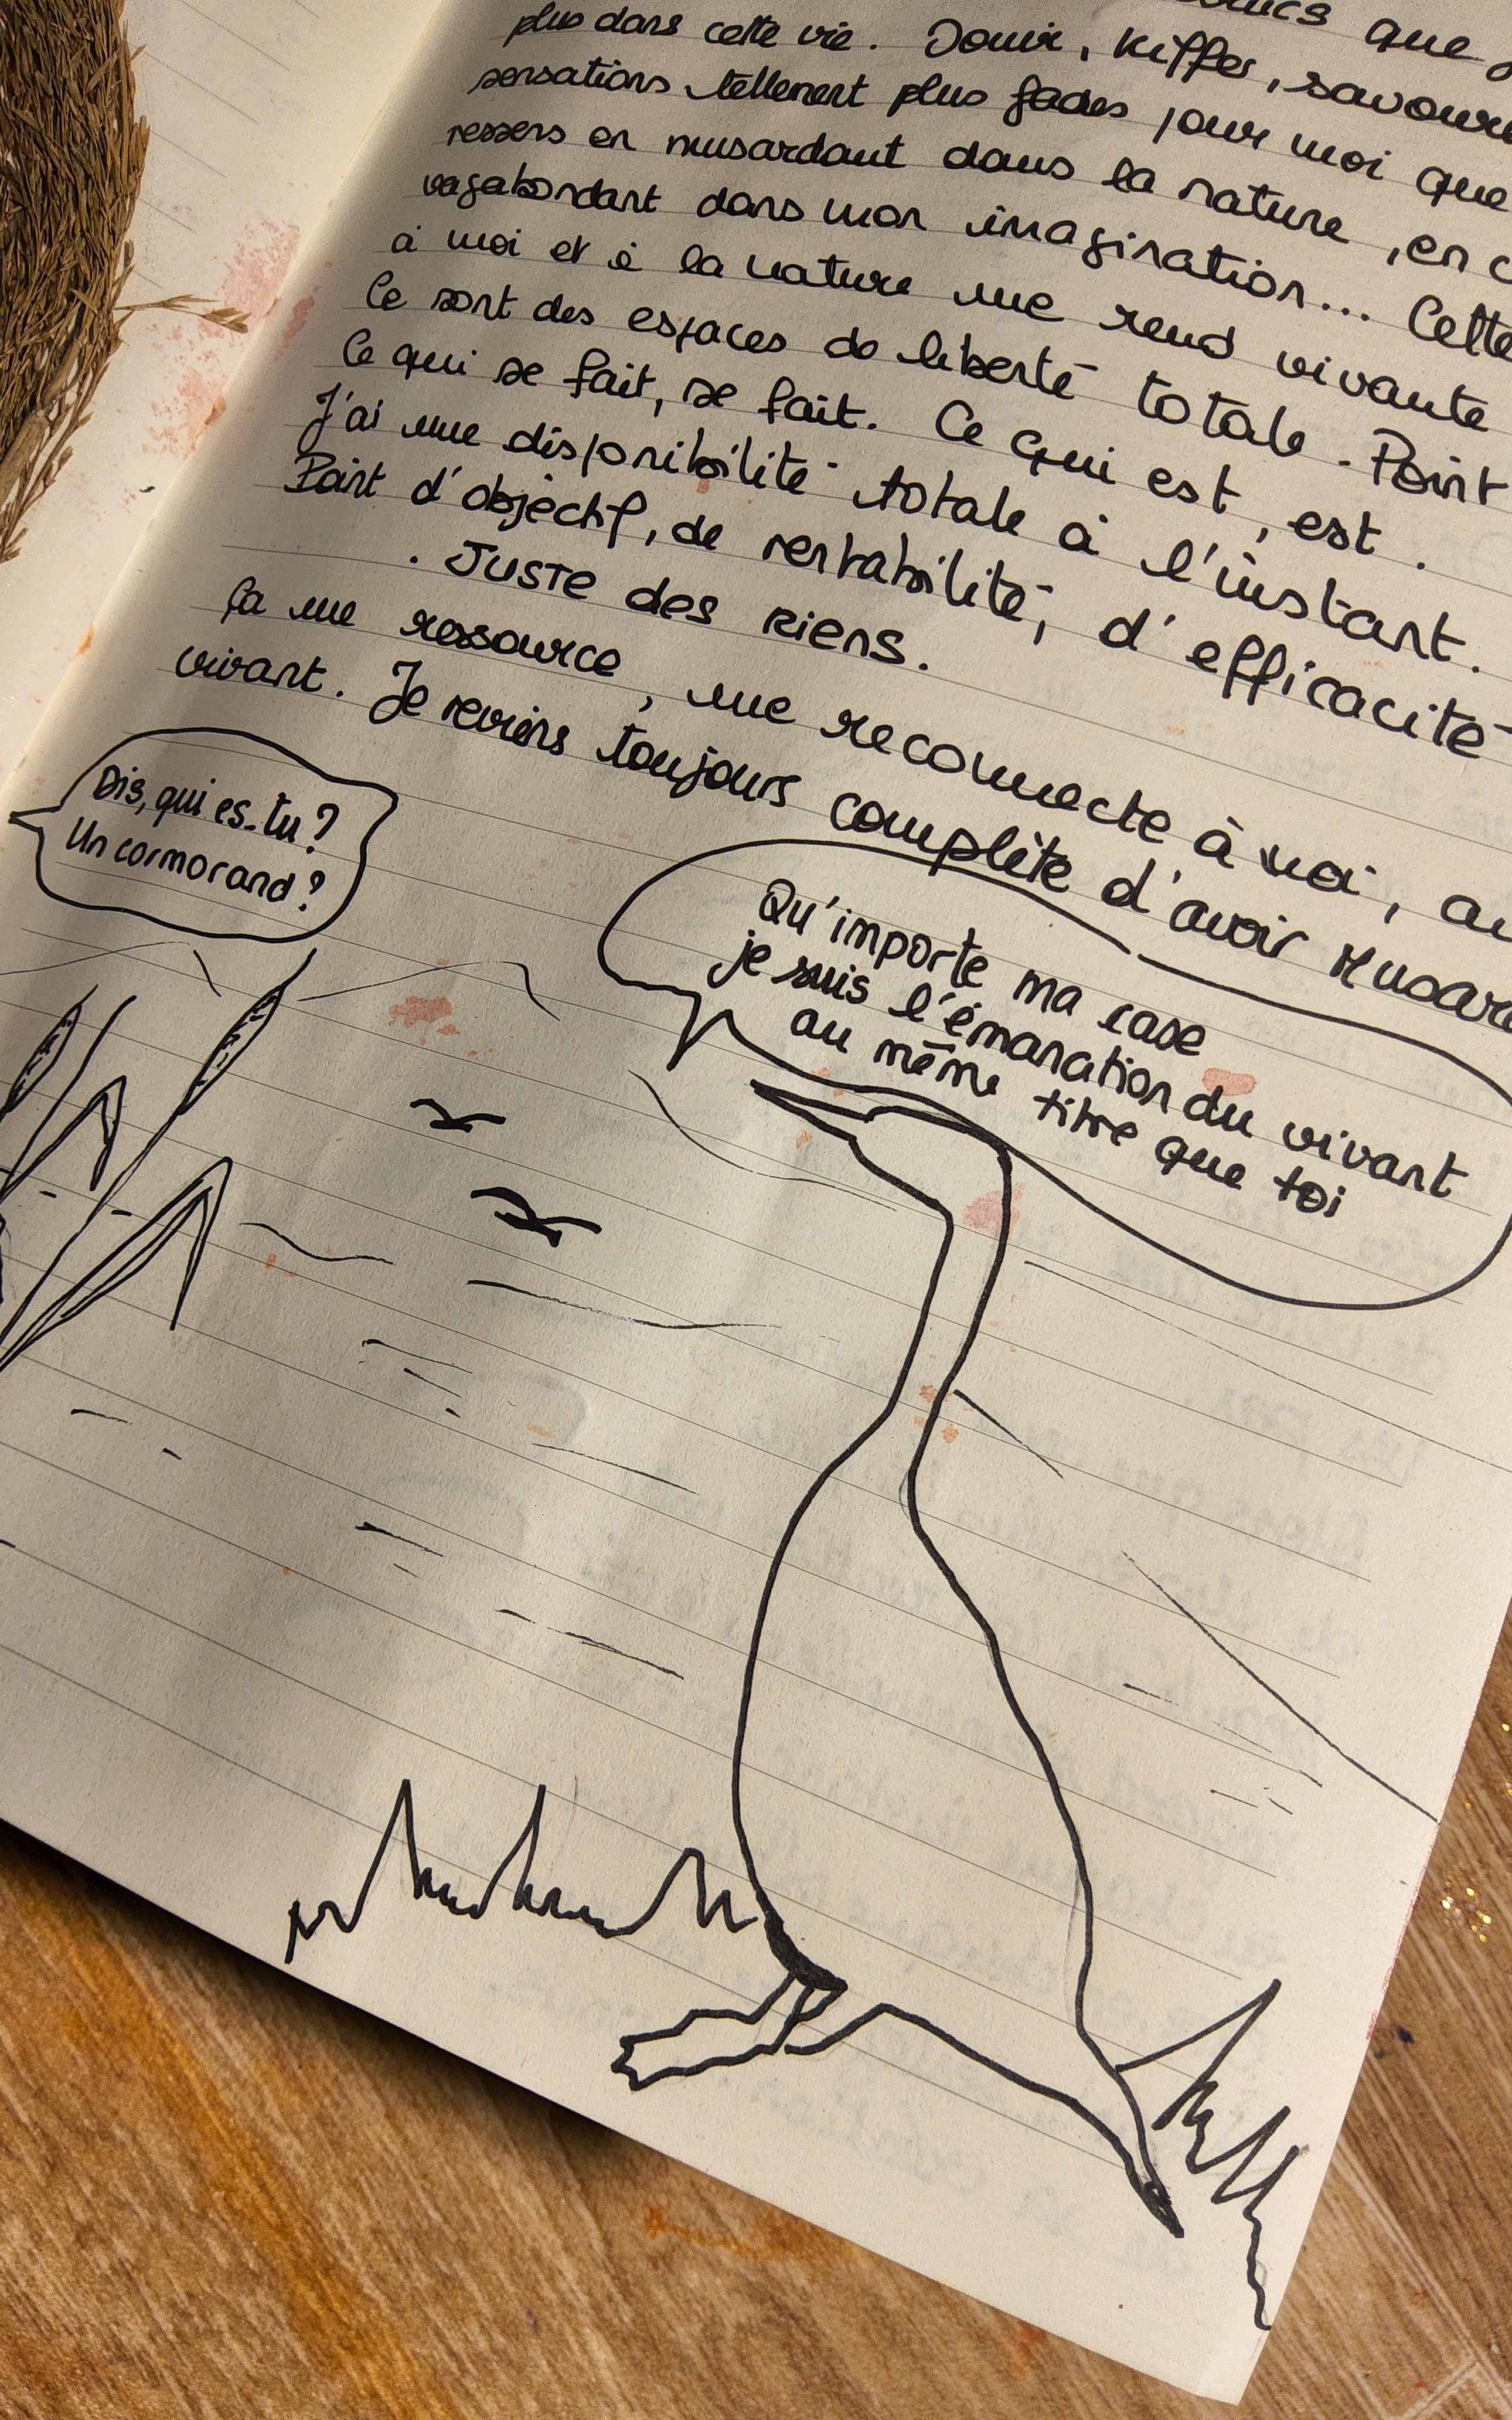 que
plus dans cette vie. Jouir, Kiffer,
sensations tellement plus fades pour moi que
ressens en musardant dans la nature, en
vagabondant dans mon imagination... Cette
à moi et à la nature me rend vivante
Ce sont des espaces de liberté totale. Point
Ce qui se fait, se fait. Ce qui est, est.
J'ai une disponibilité totale à l'instant.
Point d'objectif, de rentabilité, d'efficacité
. Juste des riens.
Ça me ressource, me reconnecte à moi, au
vivant. Je reviens toujours complète d'avoir
Dis, qui es-tu?
Un cormorand?
Qu'importe ma case
je suis l'émanation du vivant
au même titre que toi